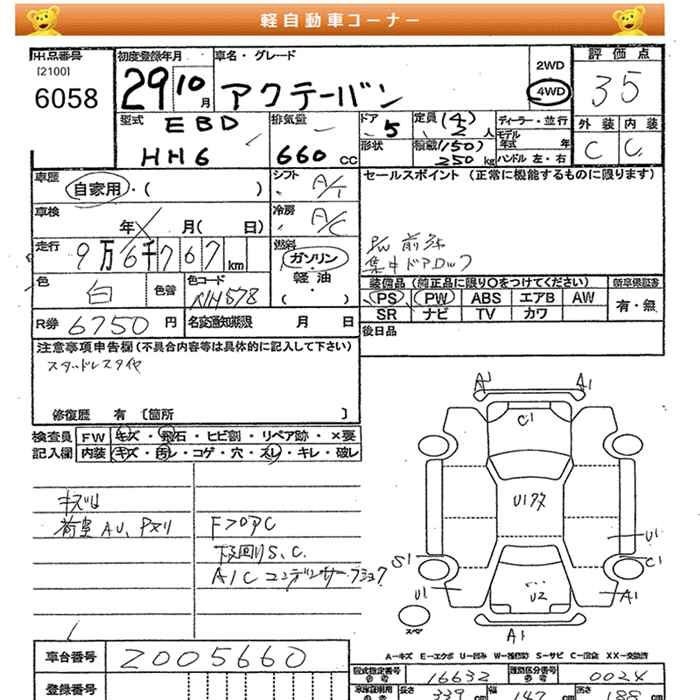 軽自動車コーナー
出品番号
[2100]
6058
初度登録年月
29 10月
車名・グレード
アクテーバン
2WD
4WD
評価点
35
型式
EBD
HH6
排気量
660 cc
ドア
5
形状
定員 (4)
2人
積載 (150)
250 kg
ディーラー・並行
モデル年式 年
ハンドル 左・右
外装 内装
C C
車歴
自家用・( )
シフト
A/T
車検
年 月( 日)
冷房
A/C
走行
9万6千767km
燃料
ガソリン・
軽油・
( )
色
白
色替
色コード
NH578
R券 6750円
名変通知期限 月 日
セールスポイント (正常に機能するものに限ります)
P/W 前 
集中ドアロック
装備品 (純正品に限り○をつけてください)
新車保証書
PS PW ABS エアB AW
有・無
SR ナビ TV カワ
後日品
注意事項申告欄(不具合内容等は具体的に記入して下さい)
スタッドレスタイヤ
修復歴 有 [箇所 ]
検査員 FW キズ・飛石・ヒビ割・リペア跡・×要
記入欄 内装 キズ・汚レ・コゲ・穴・スレ・キレ・破レ
キズ
荷室 AU、Pメリ
FフロアC
下廻りS、C.
A/C コンデンサーフショク
A1 A1
C1
U1アタ
U1
S1
C1
U1
U2
A1
A1
スペア
A－キズ E－エクボ U－凹み W－補修跡 S－サビ C－腐食 XX－交換済
車台番号 2005660
型式指定番号 参考 16632
類別区分番号 参考 0024
登録番号
長さ 339 cm 幅 147 cm 高さ 188 cm